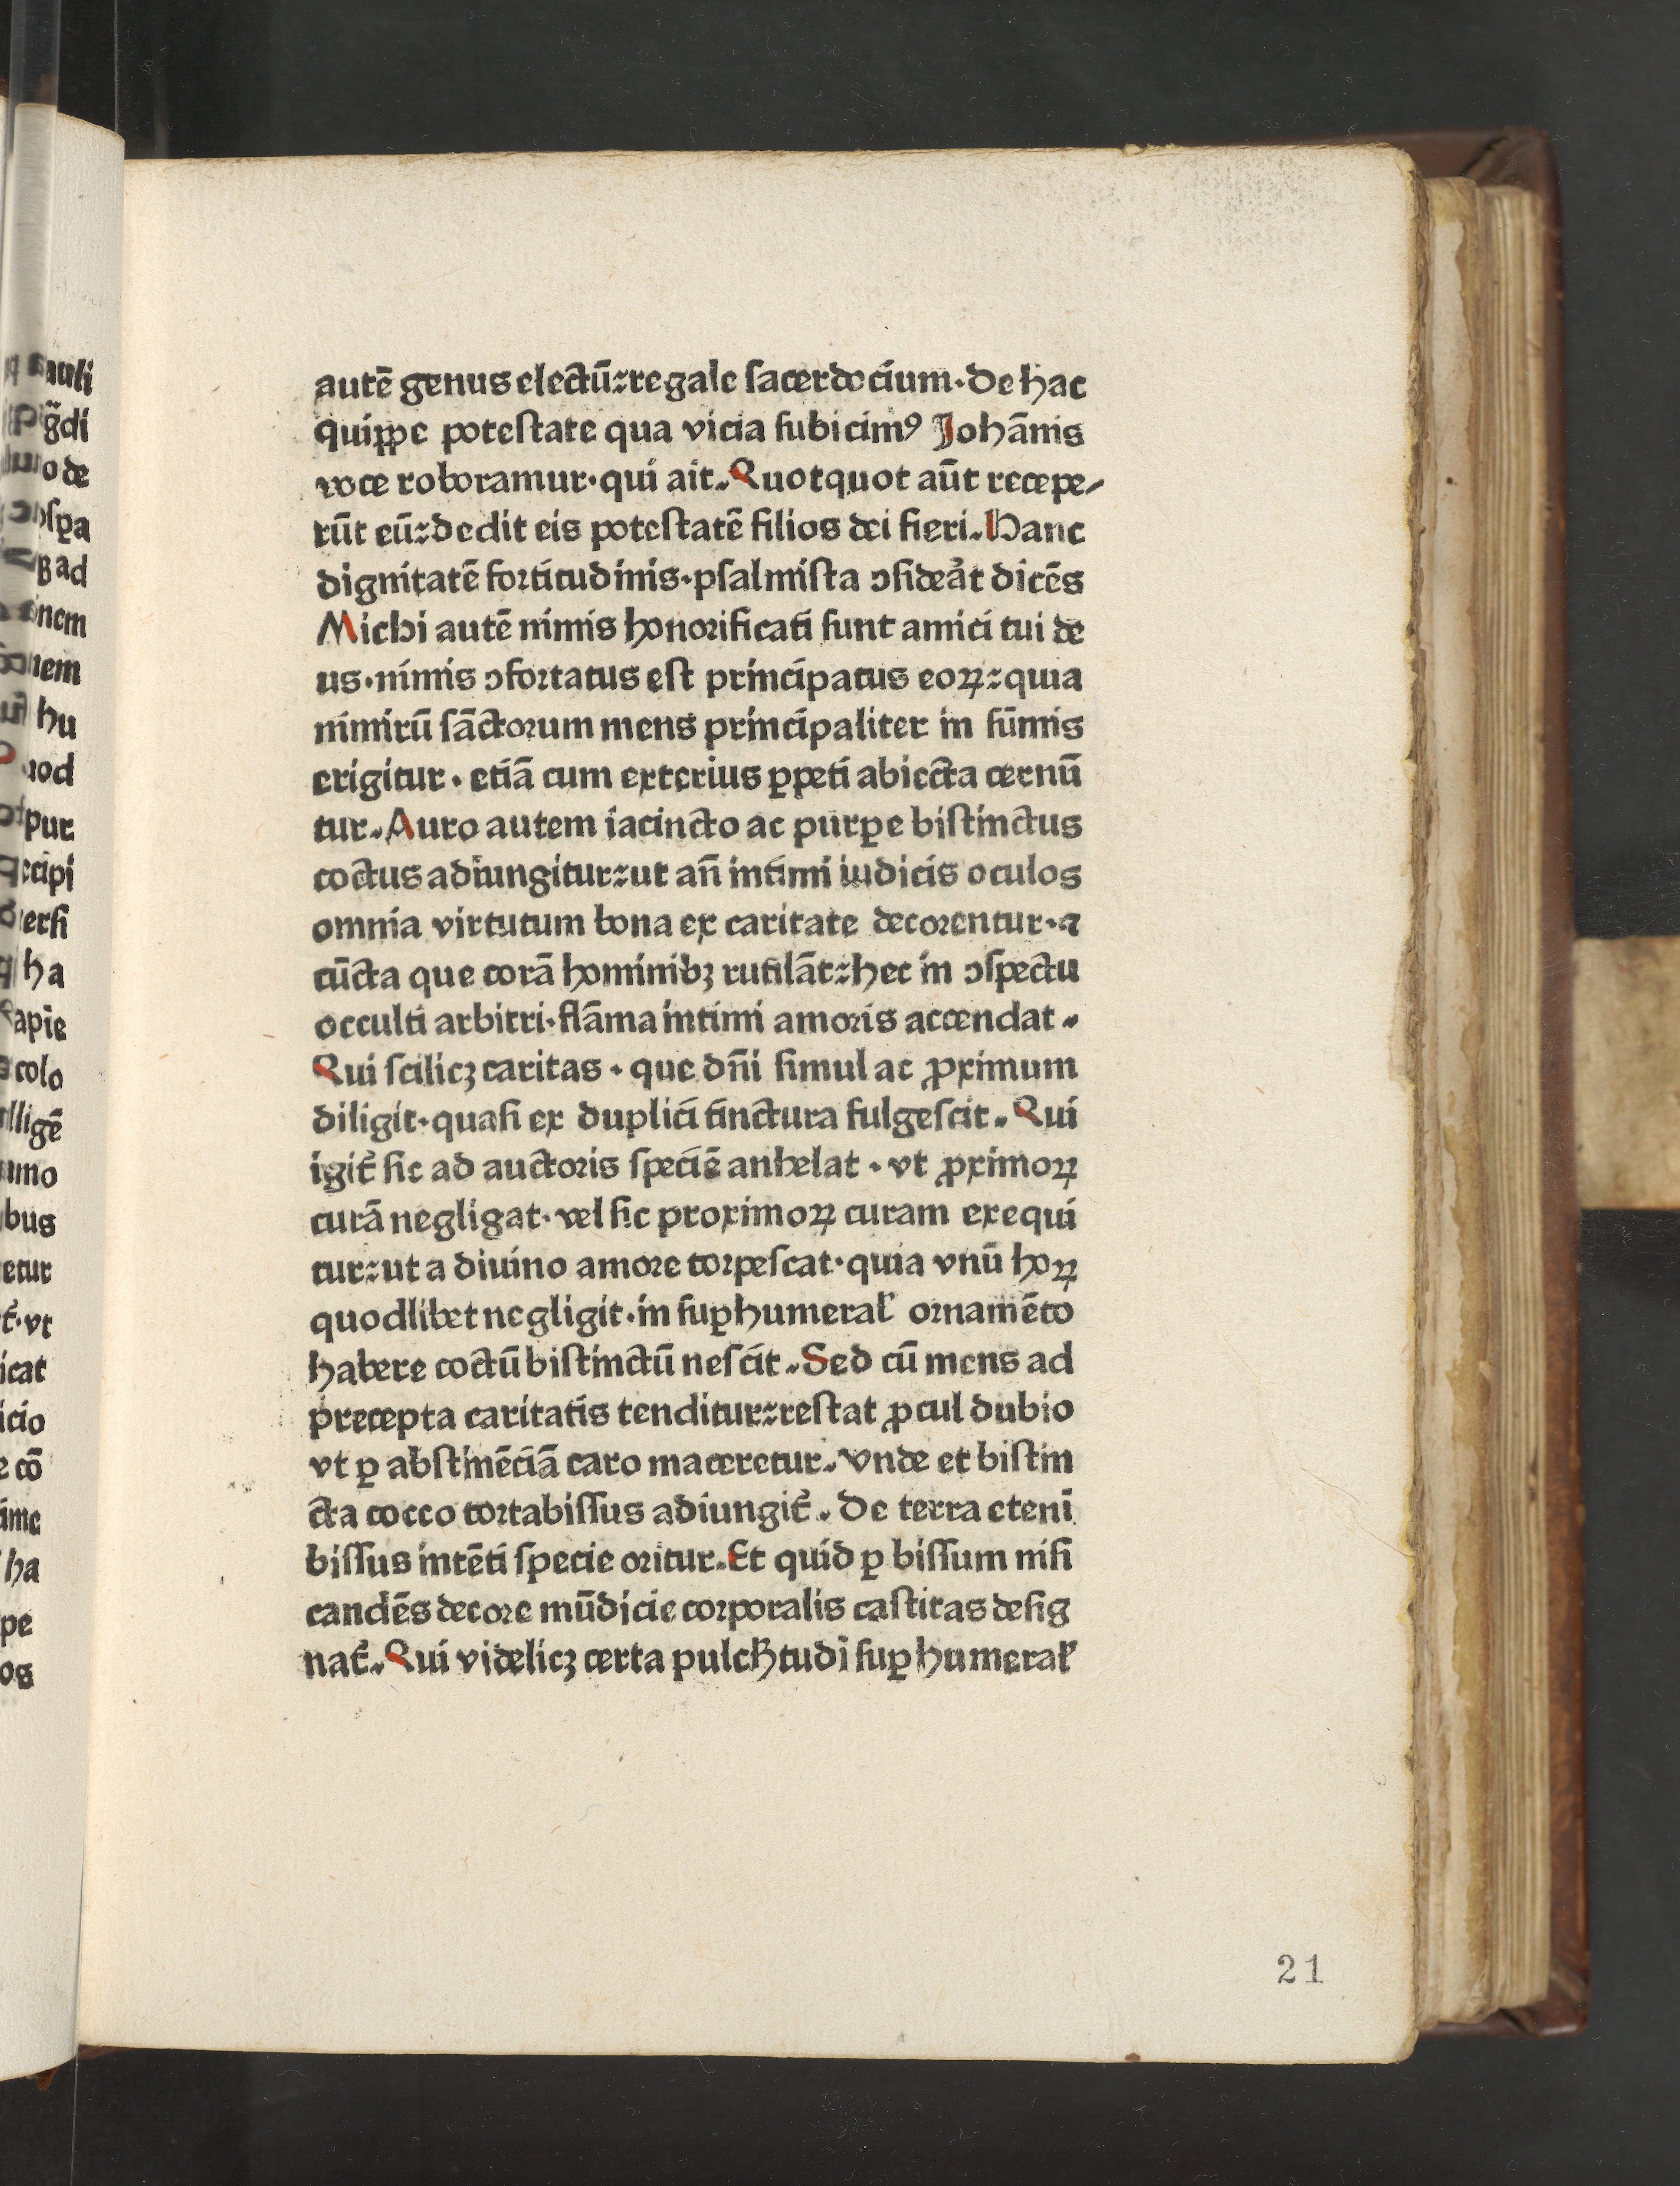 autē genus electū: regale sacerdocium. De hac
quippe potestate qua vicia subicimꝰ Johānis
voce roboramur. qui ait. Quotquot aūt recepe/
rūt eū: dedit eis potestatē filios dei fieri. Hanc
dignitatē fortitudinis. psalmista ↄsiderāt dicēs
Michi autē nimis honorificati sunt amici tui de
us. nimis ↄfortatus est principatus eoꝝ: quia
nimirū sāctorum mens principaliter in sūmis
erigitur. etiā cum exterius ꝑpeti abiecta cernū
tur. Auro autem iacincto ac purꝑe bistinctus
coctus adiungitur: ut an̄ intimi iudicis oculos
omnia virtutum bona ex caritate decorentur. ⁊
cūcta que corā hominibꝫ rutilāt: hec in ↄspectu
occulti arbitri. flāma intimi amoris accendat.
Qui scilicꝫ caritas. que dn̄i simul ac ꝓximum
diligit. quasi ex duplici tinctura fulgescit. Qui
igit̄ sic ad auctoris speciē anhelat. vt ꝓximoꝝ
curā negligat. vel sic proximoꝝ curam exequi
tur: ut a diuino amore torpescat. quia vnū hoꝝ
quodlibet negligit. in suꝑhumeral̄ ornamēto
habere coctū bistinctū nescit. Sed cū mens ad
precepta caritatis tenditur: restat ꝓcul dubio
vt ꝑ abstinēciā caro maceretur. Vnde et bistin
cta cocco tortabissus adiungit̄. De terra etenī
bissus intēti specie oritur. Et quid ꝑ bissum nisi
candēs decore mūdicie corporalis castitas desig
nat̄. Qui videlicꝫ certa pulcħtudī suꝑhumeral̄
21